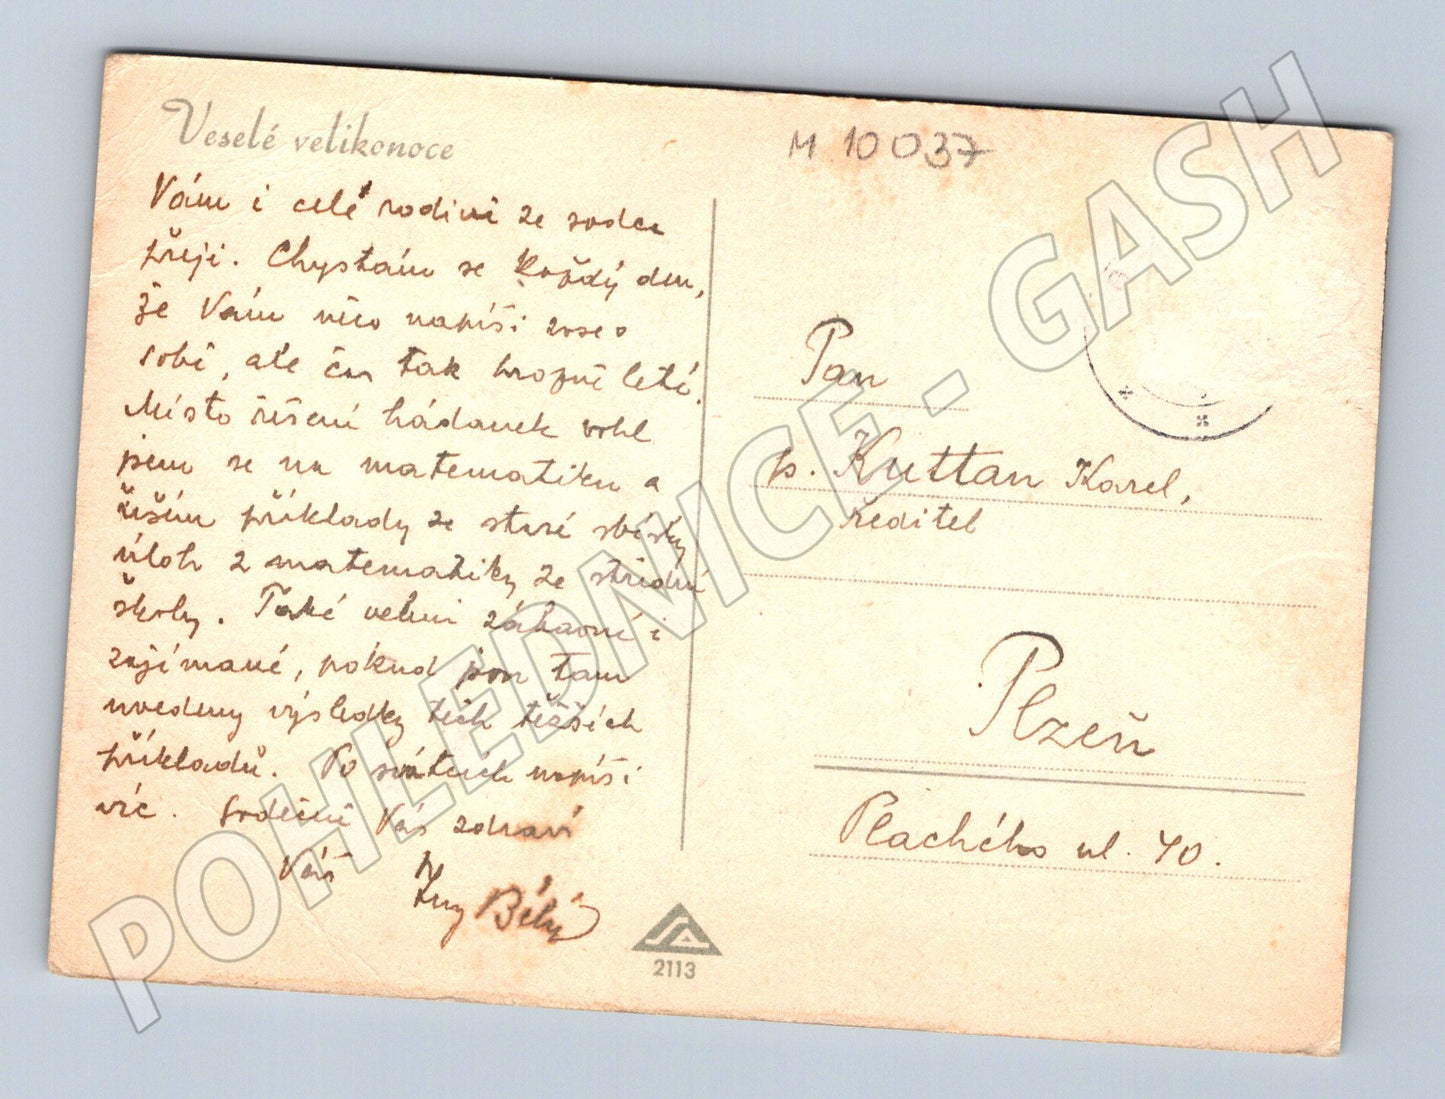 Veselé velikonoce
Vám i celé rodině ze srdce
přeji. Chystám se každý den,
že Vám něco napíši zase o
sobě, ale čas tak hrozně letí.
Místo řešení hádanek vrhl
jsem se na matematiku a
řeším příklady ze staré sbírky
úloh z matematiky ze střední
školy. Také velmi zábavné i
zajímavé, pokud jsou tam
uvedeny výsledky těch těžších
příkladů. Po svátcích napíši
víc. Srdečně Vás zdraví
Váš Bělý
M 10037
Pan
p. Kuttan Karel,
ředitel
Plzeň
Plachého ul. 40.
2113
POHLEDNICE - GASH